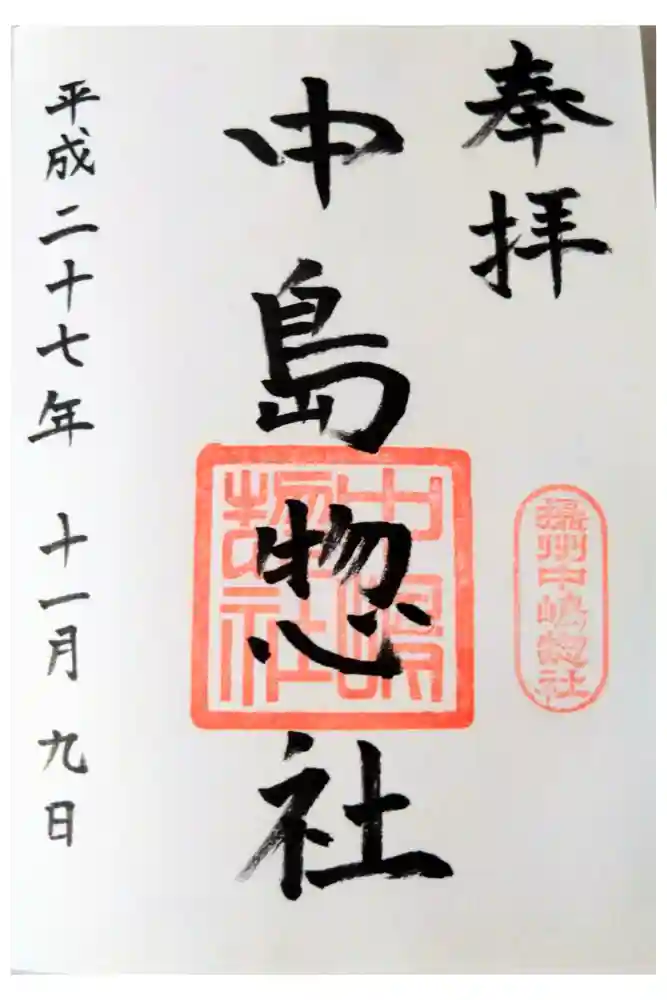 奉拝
中島惣社
中嶋惣社
摂州中嶋惣社
平成二十七年 十一月 九日